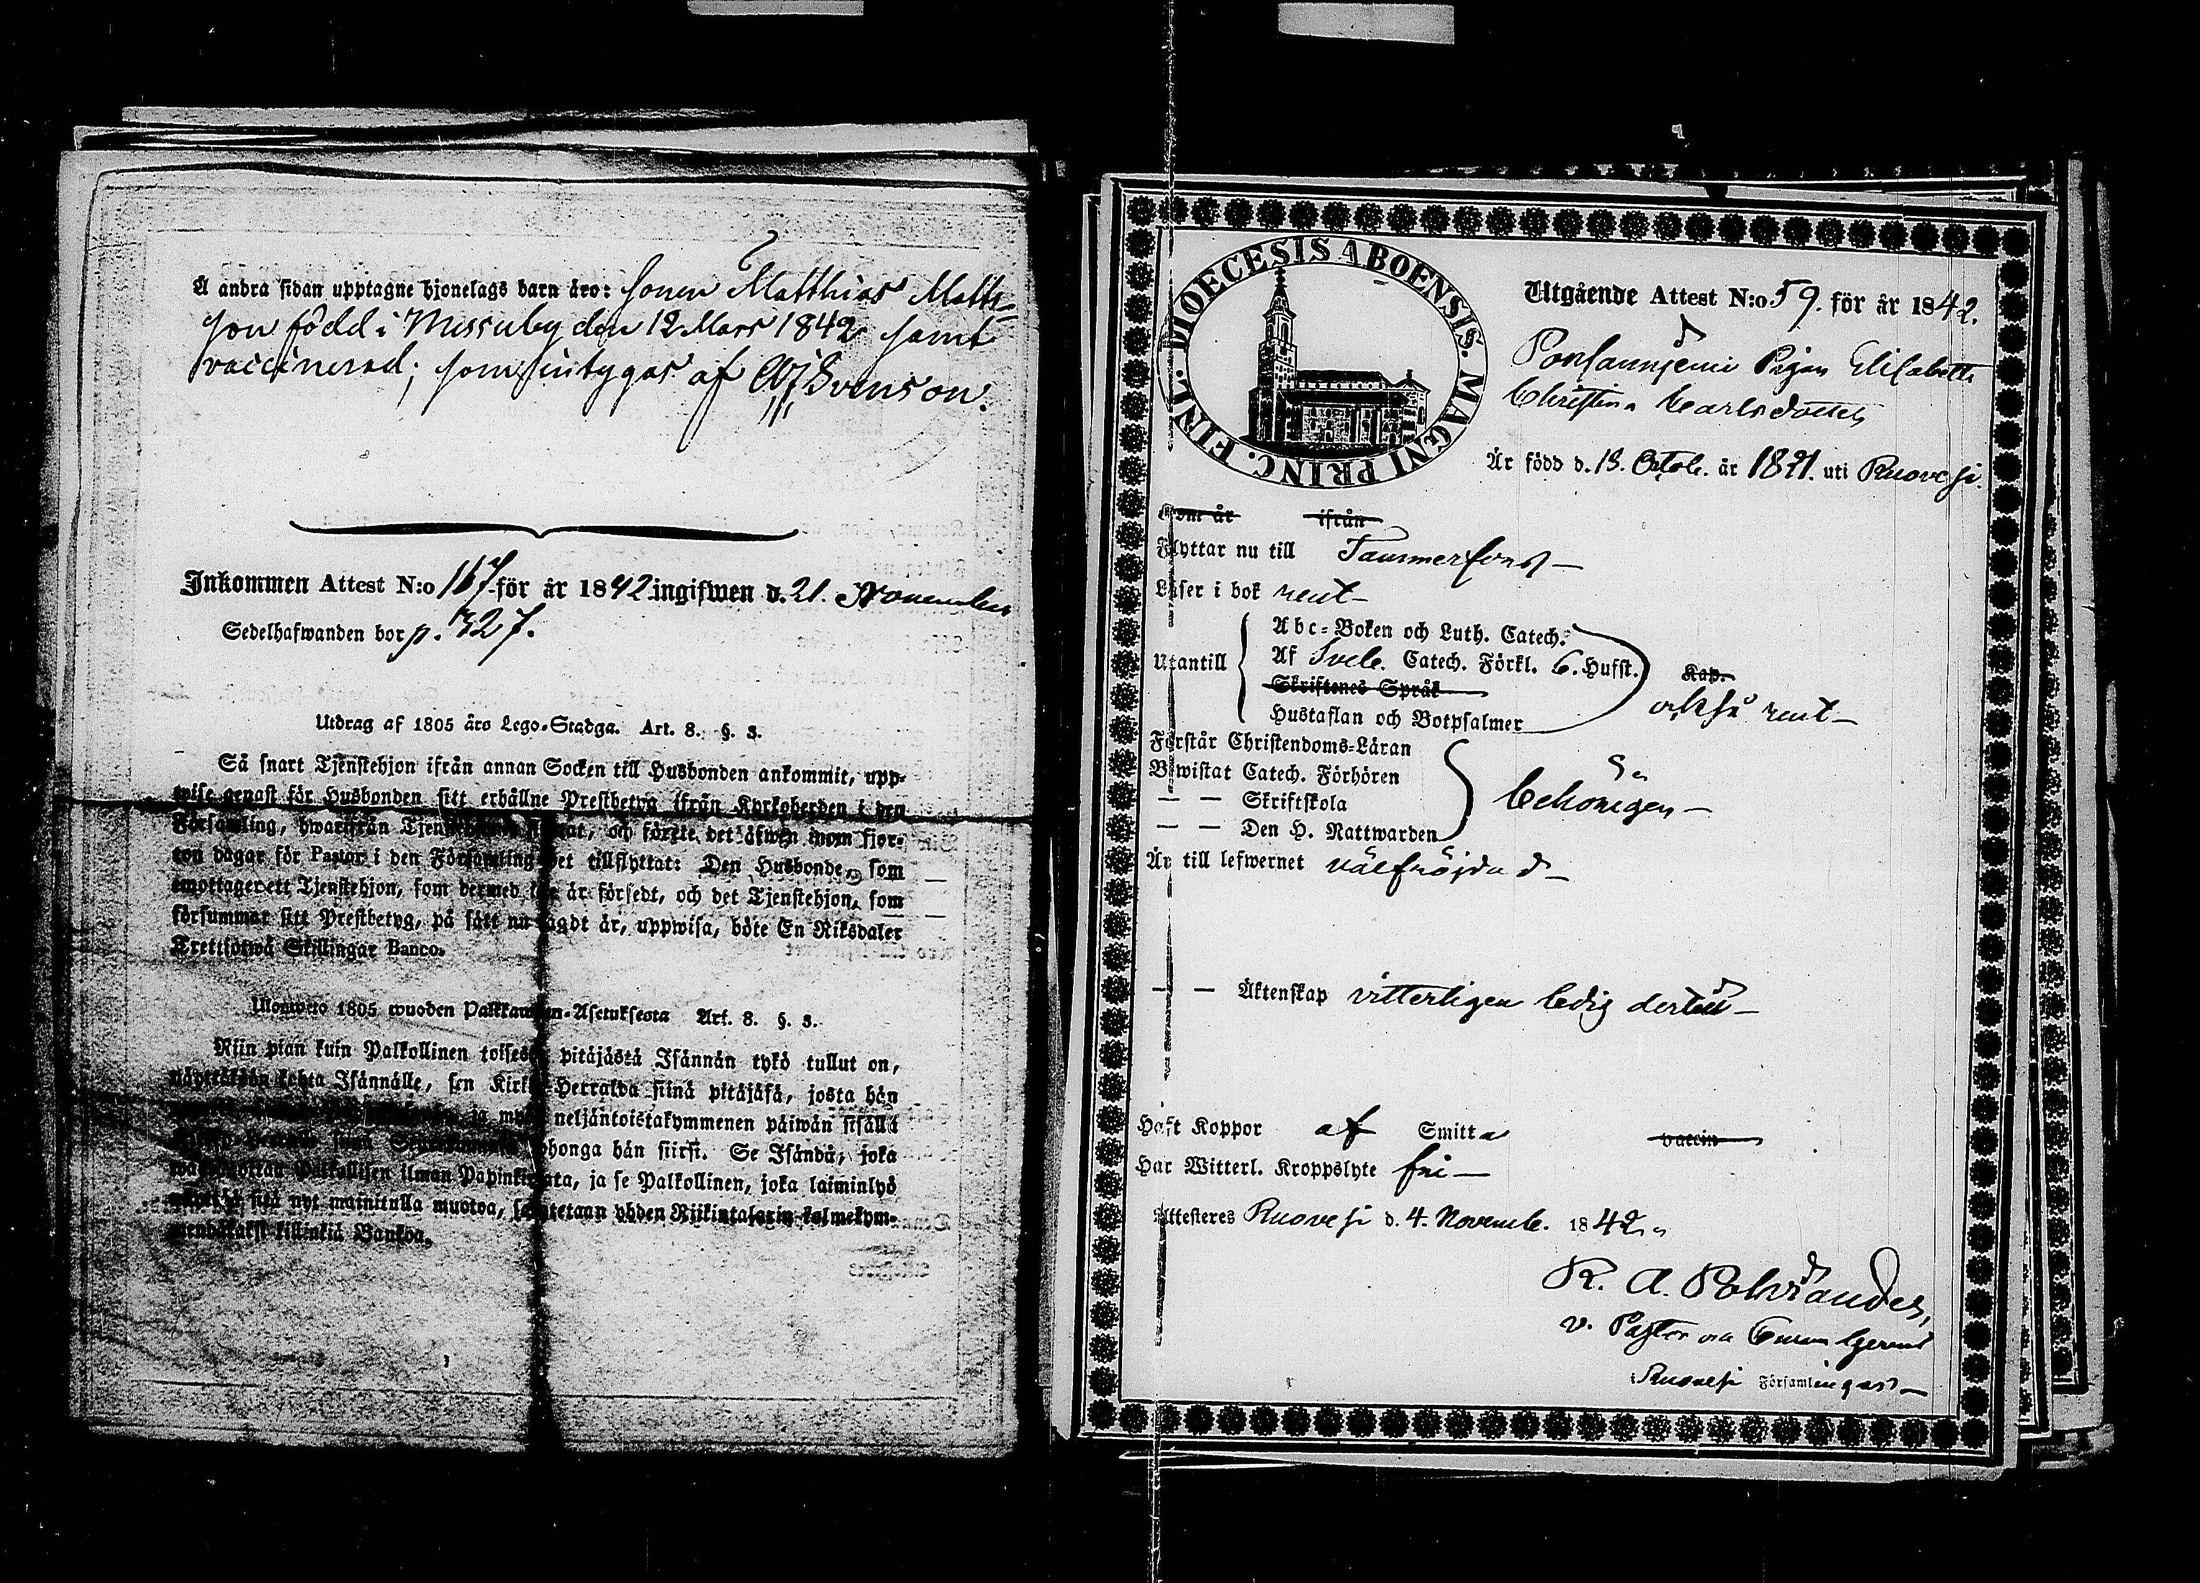 Å andra sidan upptagne hjonelags barn äro: Sonen Matthias Matts-
son född i Messuby den 12 Mars 1842 samt
vaccinerad; som intygas af Svenson.
Inkommen Attest N:o 167 för år 1842 ingifwen d. 21. November
Sedelhafwanden bor p. 327.
Utdrag af 1805 års Lego-Stadga. Art. 8. §. 3.
Så snart Tjenstehjon ifrån annan Socken till Husbonden ankommit, upp-
wise genast för Husbonden sitt erhållne Prestbetyg ifrån Kyrkoherden i den
Församling, hwarifrån Tjenstehjonet flyttat, och förete det äfwen inom fjor-
ton dagar för Pastor i den Församling det tillflyttat: Den Husbonde, som
emottager ett Tjenstehjon, som dermed icke är försedt, och det Tjenstehjon, som
försummar sitt Prestbetyg, på sätt nu sagdt är, uppwisa, böte En Riksdaler
Trettiotwå Skillingar Banco.
Ulosweto 1805 wuoden Palkkawäen-Asetuksesta Art. 8. §. 3.
Niin pian kuin Palkollinen toisesta pitäjästä Isännän tykö tullut on,
näyttäköön kohta Isännälle, sen Kirkko-Herralda siinä pitäjäsä, josta hän
ja myös neljäntoistakymmenen päiwän sisällä
siinä Seurakunnasa johonga hän siirsi. Se Isändä, joka
wastaanottaa Palkollisen ilman Papinkirjata, ja se Palkollinen, joka laiminlyö
sitä nyt mainitulla muotoa, sakotetaan yhden Riikintalarin kolmekym-
mendäkaksi killinkiä Bankoa.
DIOECESIS ABOENSIS. MAGNI PRINC. FINL.
Utgående Attest N:o 59. för år 1842.
Pigan Elisabeth
Christina Carlsdotter
Är född d. 13. Octob. år 1821. uti Ruovesi.
Kom år ifrån
Flyttar nu till Tammerfors
Läser i bok rent
Abc-Boken och Luth. Catech.
Utantill Af Sveb. Catech. Förkl. 6. Hufst. Kap.
Skriftenes Språk också rent
Hustaflan och Botpsalmer
Förstår Christendoms-Läran
Bewistat Catech. Förhören behörigen
— — Skriftskola
— — Den H. Nattwarden
Är till lefwernet välfrejdad
— — Äktenskap vitterligen ledig dertill
Haft Koppor af Smitta vaccin
Har Witterl. Kroppslyte fri
Attesteras Ruovesi d. 4. Novemb. 1842.
R. A.
v. Pastor
Ruovesi Församlingar